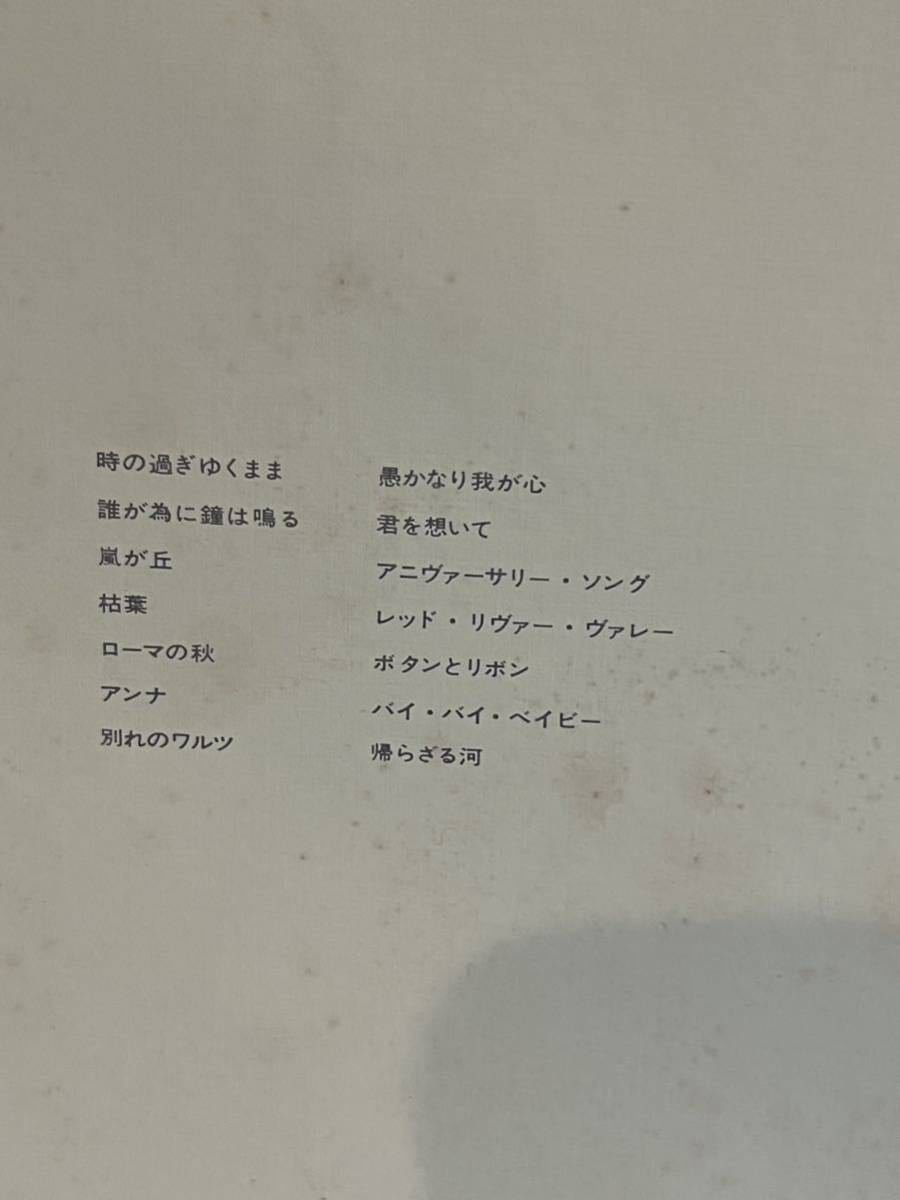 時の過ぎゆくまま
誰が為に鐘は鳴る
嵐が丘
枯葉
ローマの秋
アンナ
別れのワルツ
愚かなり我が心
君を想いて
アニヴァーサリー・ソング
レッド・リヴァー・ヴァレー
ボタンとリボン
バイ・バイ・ベイビー
帰らざる河